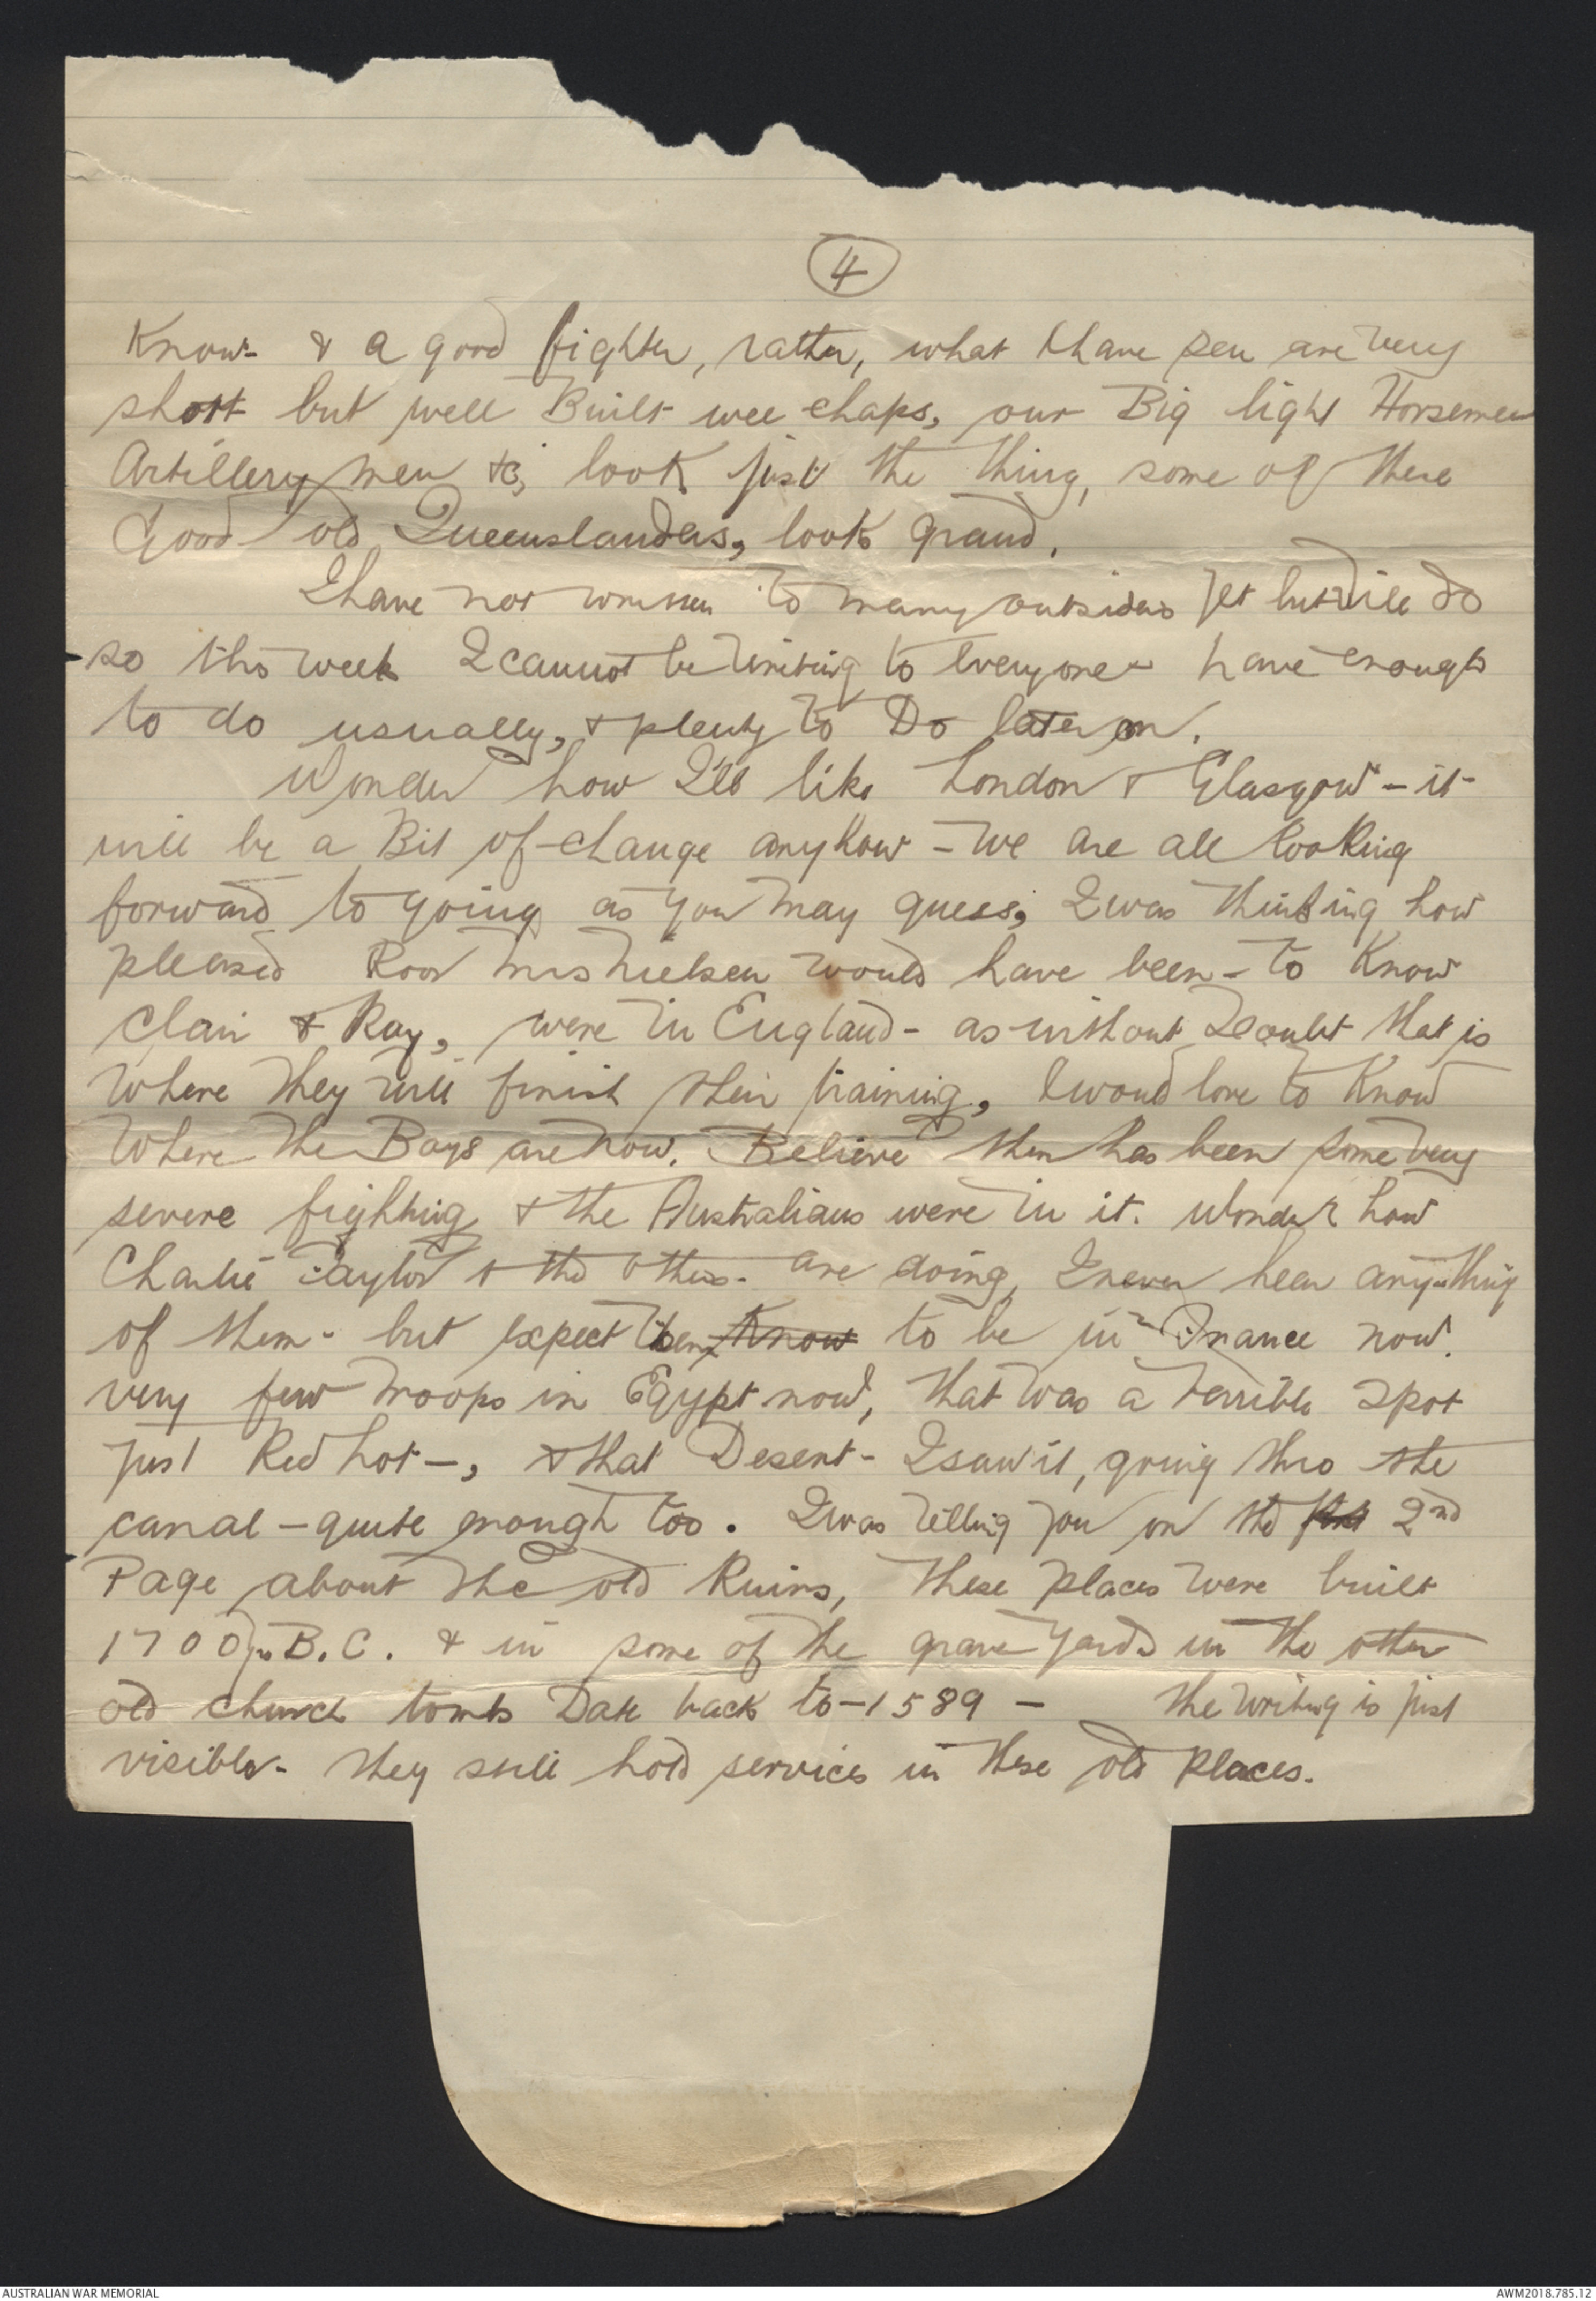 4
Know & a good fighter, rather, what I have seen are very
short but well Built wee chaps, our Big light Horsemen
Artillery men &c, look just the thing, some of these
Good old Queenslanders, look grand.
I have not written to many outsiders yet but will do
so this week I cannot be writing to everyone & have enough
to do usually, & plenty to Do later on.
Wonder how I'll like London & Glasgow - it
will be a Bit of change anyhow - we are all looking
forward to going as you may guess, I was thinking how
pleased Poor Mrs Nielsen would have been - to Know
Clair & Ray, were in England - as without Doubt that is
where they will finish their training, I woud love to Know
where the Boys are now. Believe there has been some very
severe fighting & the Australians were in it. Wonder how
Charlie Taylor & the others - are doing, I never hear anything
of them - but expect them Know to be in France now.
very few troops in Egypt now, that was a terrible spot
just Red hot -, & that Desert - I saw it, going thro the
canal - quite enough too. I was telling you on the 2nd
Page about the old Ruins, these places were built
1700 yrs B.C. & in some of the grave yards in the other
old church tombs Date back to - 1589 - the writing is just
visible - they still hold services in these old places.
AUSTRALIAN WAR MEMORIAL
AWM2018.785.12